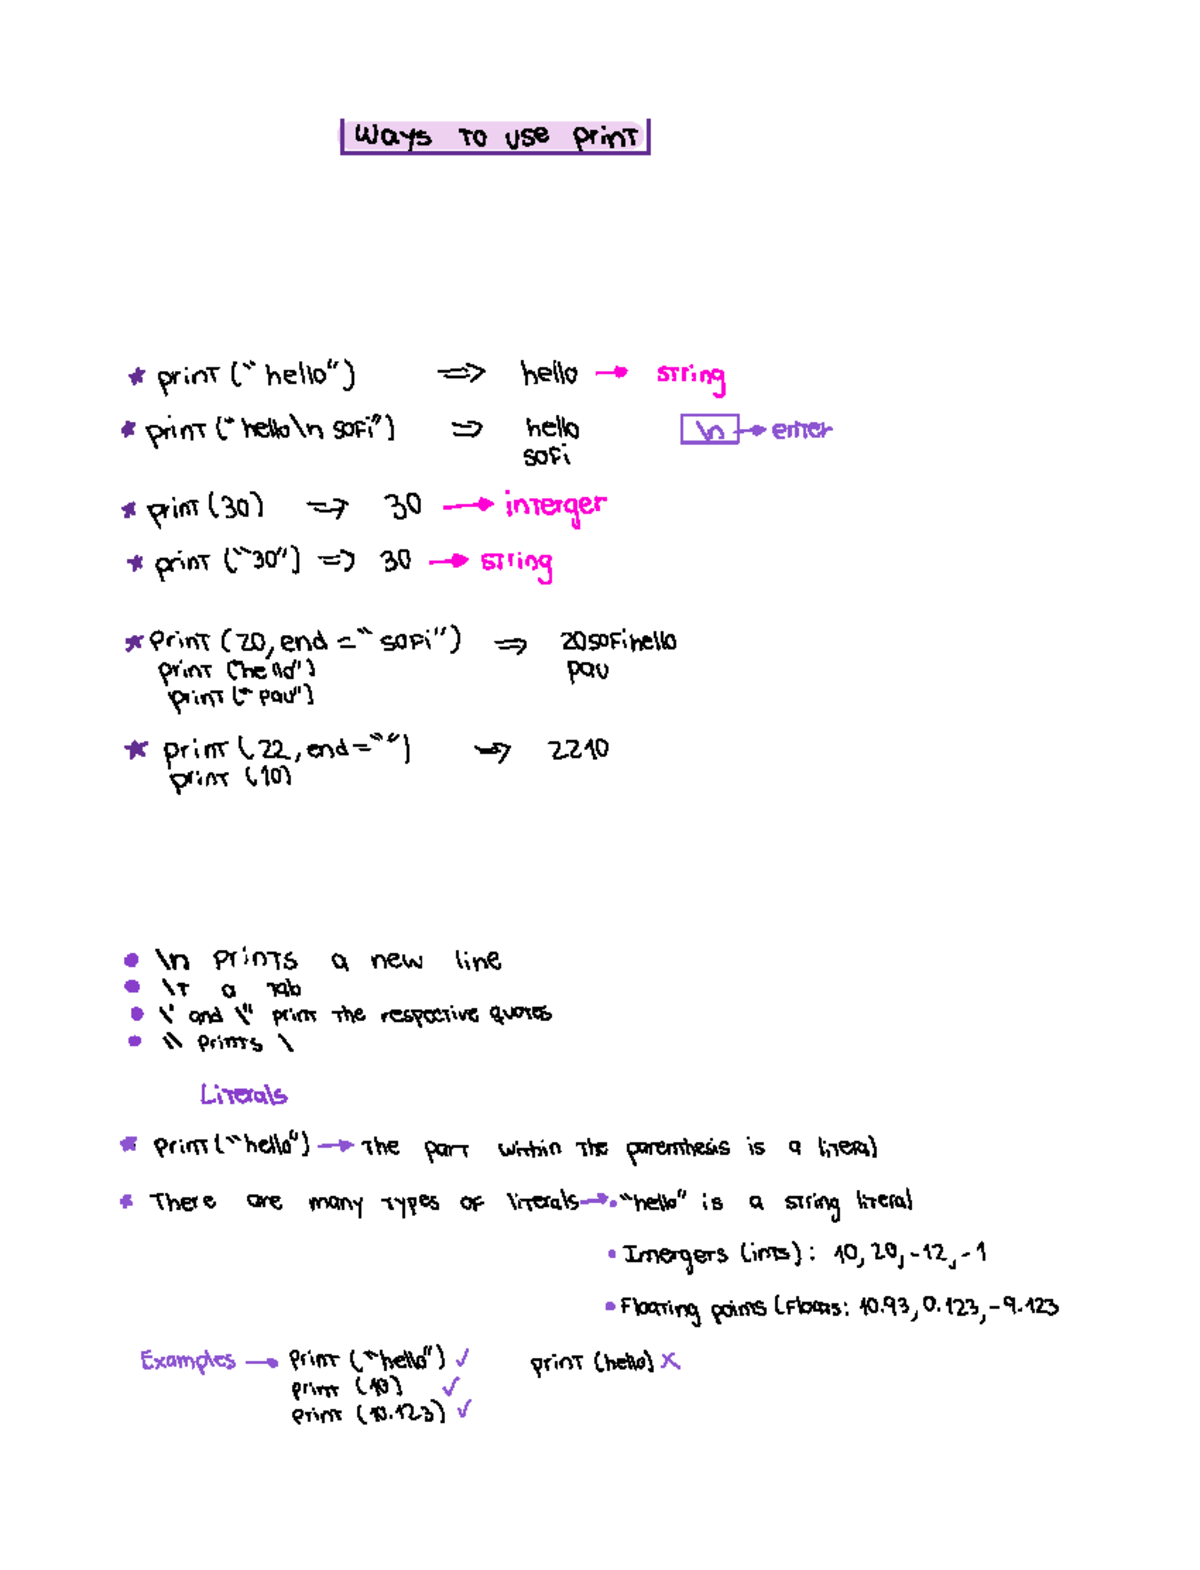 Ways to use print
* print ("hello") => hello → string
* print ("hello\n sofi") => hello \n → enter
sofi
* print (30) => 30 → interger
* print ("30") => 30 → string
* Print (20, end = "sofi") => 20sofihello
print ("hello") pau
print ("pau")
* print (22, end = "") => 2210
print (10)
• \n prints a new line
• \t a tab
• \' and \" print the respective quotes
• \\ prints \
Literals
* print ("hello") → the part within the parenthesis is a literal
* There are many types of literals → • "hello" is a string literal
• Intergers (ints): 10, 20, -12, -1
• Floating points (floats: 10.93, 0.123, -9.123
Examples → print ("hello") ✓ print (hello) x
print (10) ✓
print (10.123) ✓